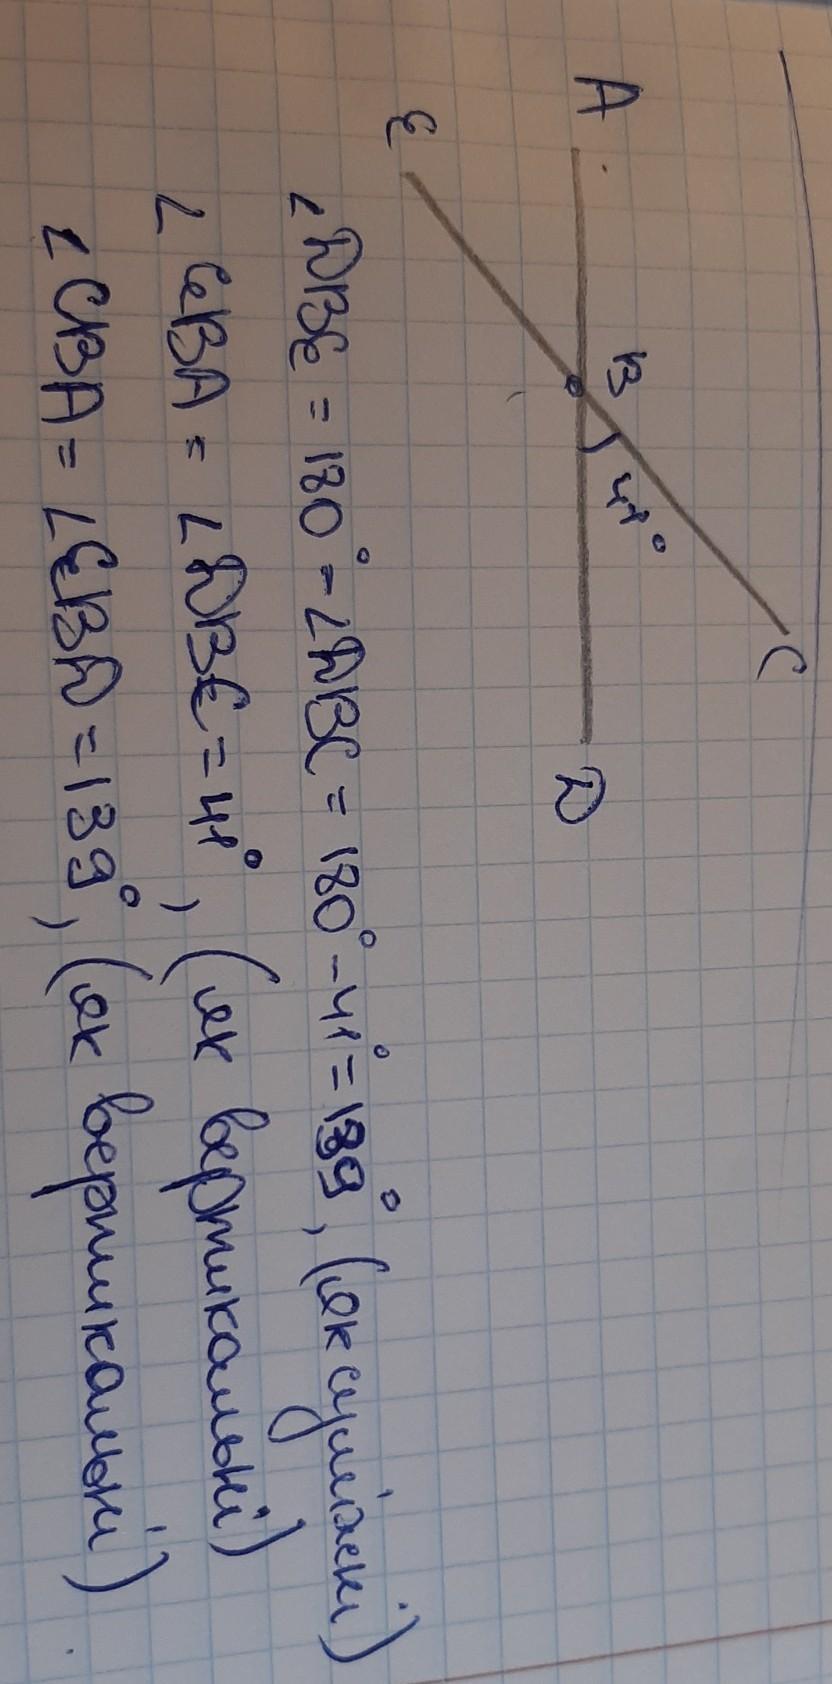 A
C
B
41°
D
E
∠DBE = 180° - ∠DBC = 180° - 41° = 139°, (як суміжні)
∠EBA = ∠DBC = 41°, (як вертикальні)
∠CBA = ∠EBD = 139°, (як вертикальні)